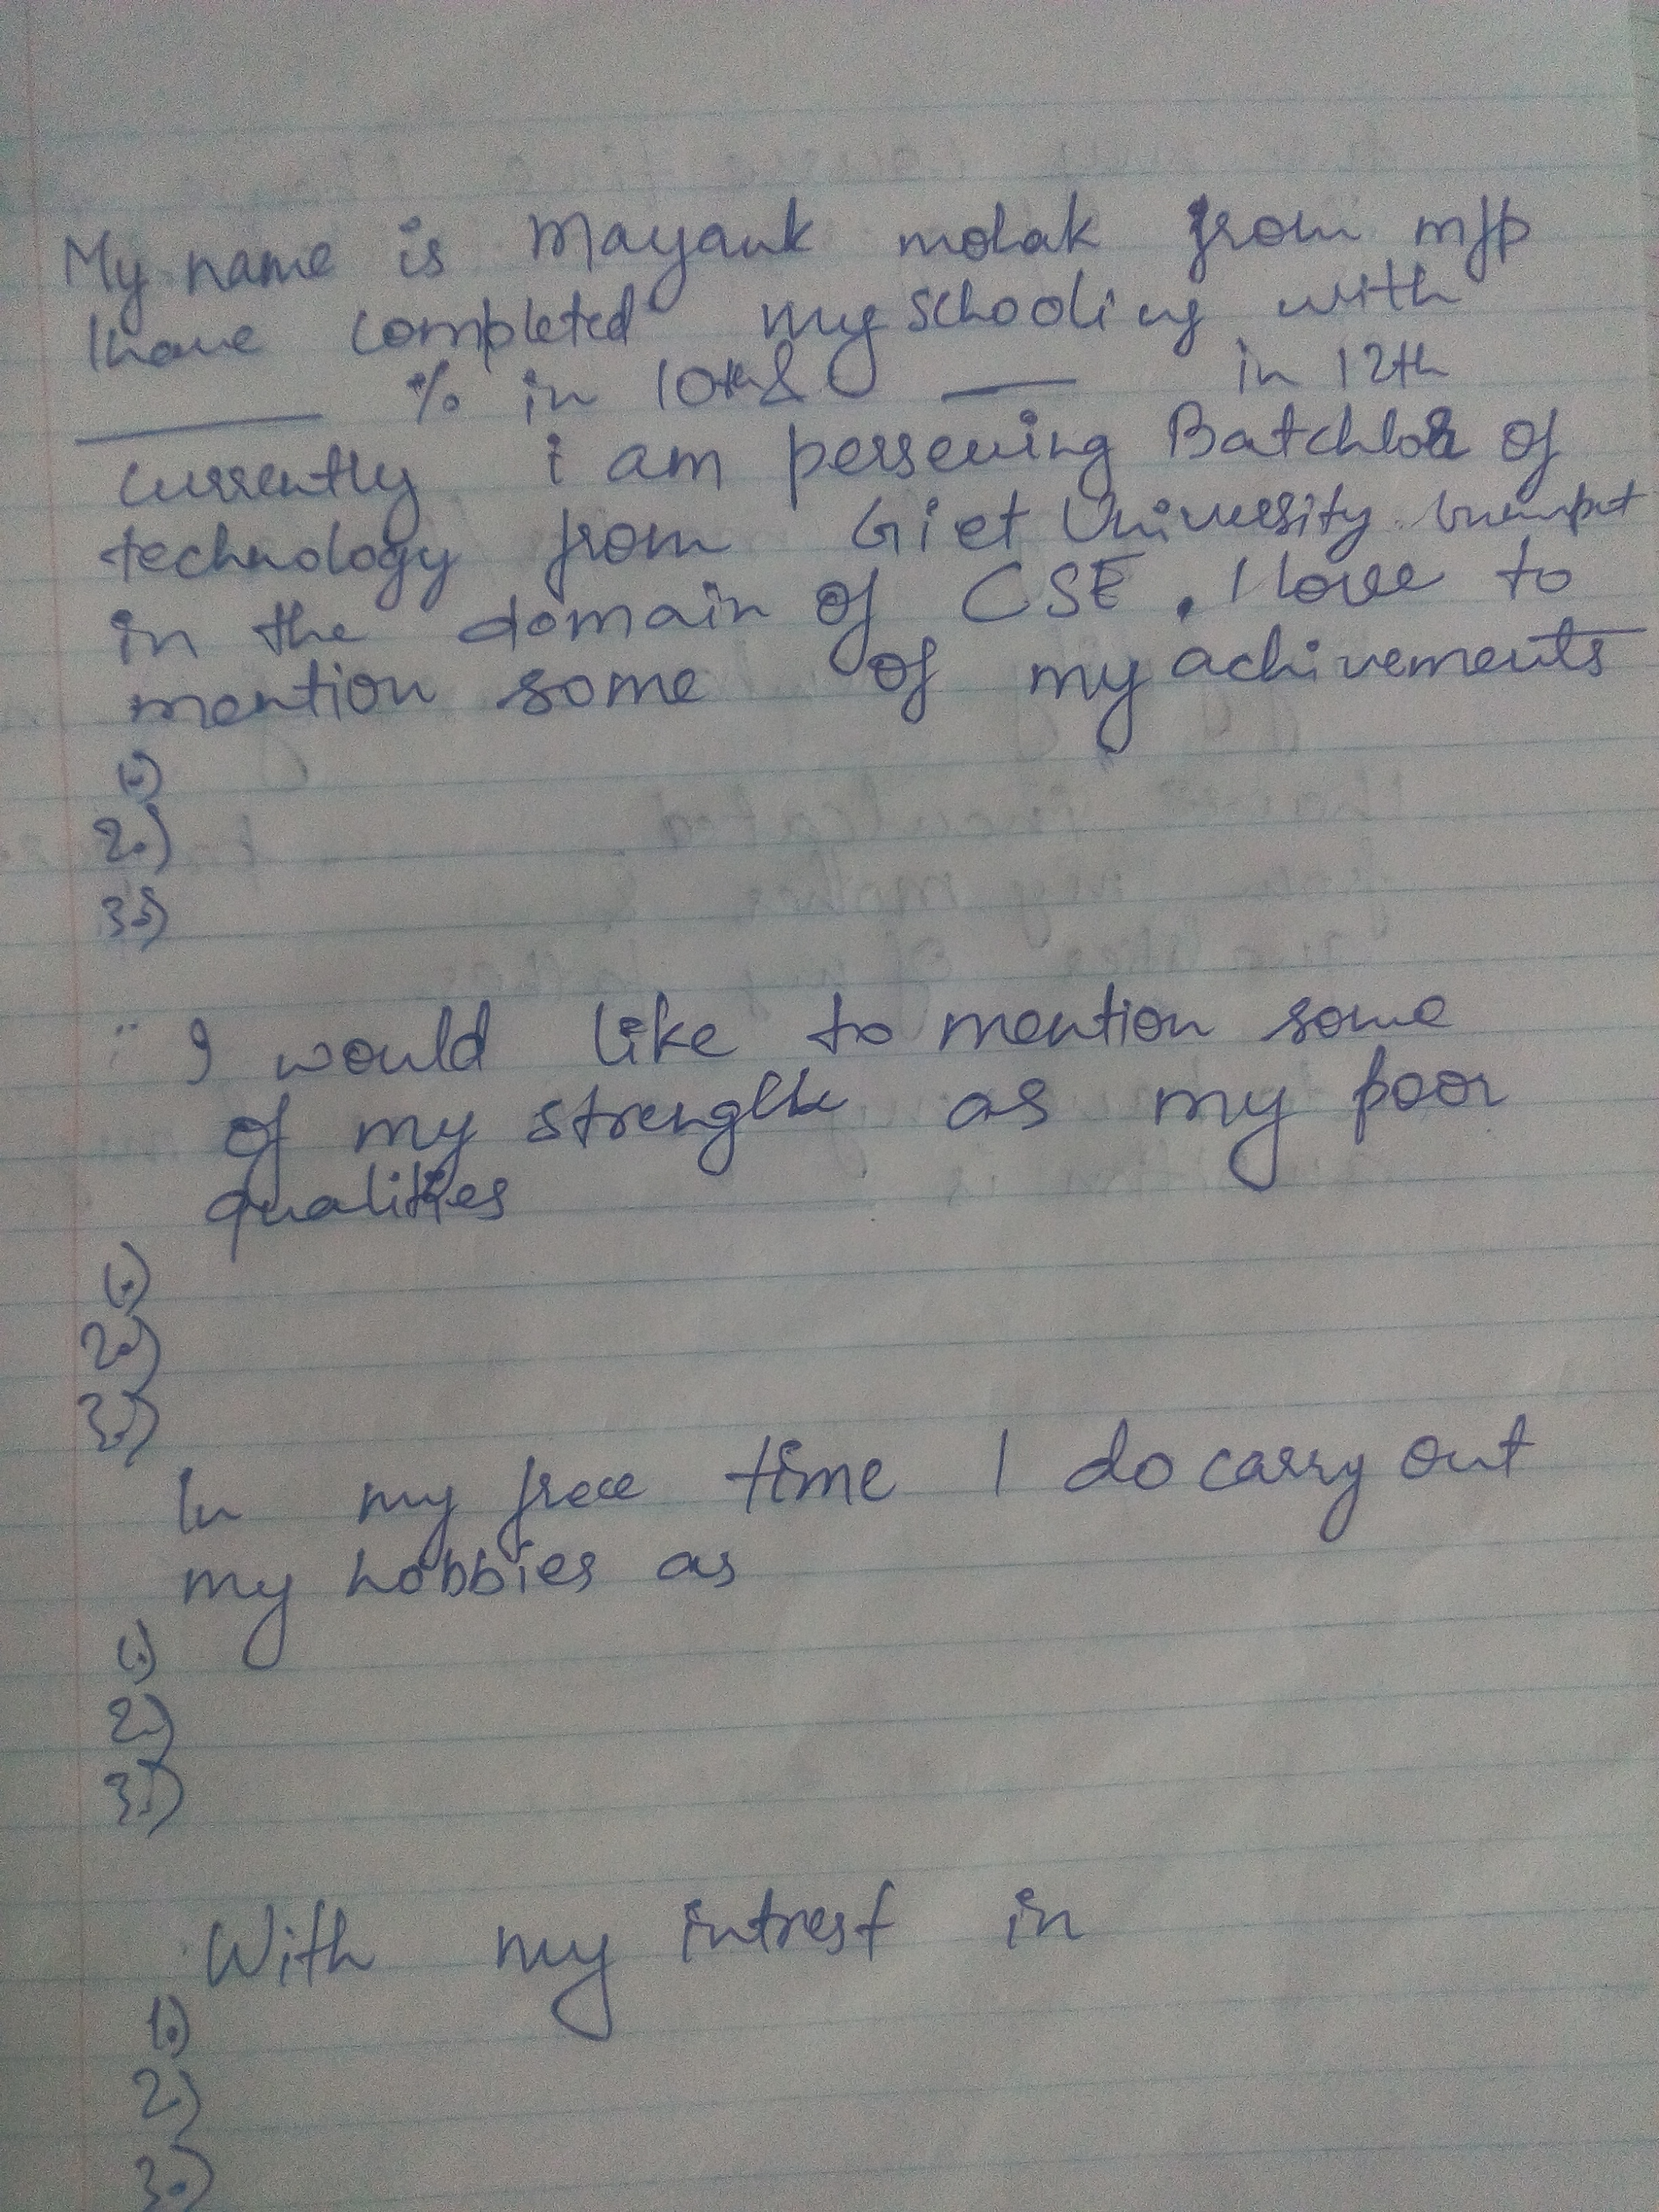 My name is Mayank molak from mfp
I have completed my schooling with
____ % in 10th & ____ in 12th
Currently i am perseuing Batchlor of
technology from Giet University
in the domain of CSE. I love to
mention some of my achivements
1.)
2.)
3.)
I would like to mention some
of my strength as my poor
qualities
1.)
2.)
3.)
In my free time I do carry out
my hobbies as
1.)
2.)
3.)
With my intrest in
1.)
2.)
3.)